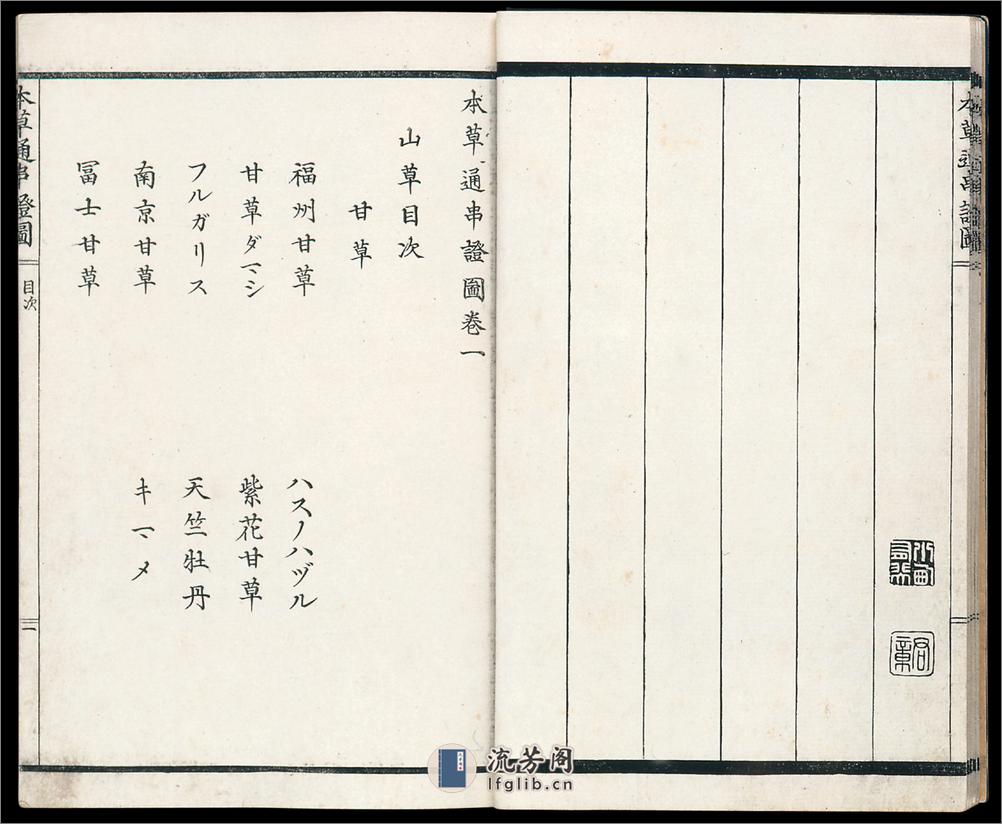 本草通串證圖
本草通串證圖卷一
山草目次
甘草
福州甘草
ハスノハヅル
甘草ダマシ
紫花甘草
フルガリス
天竺牡丹
南京甘草
キマメ
冨士甘草
本草通串證圖
目次
一
流芳阁
lfglib.cn